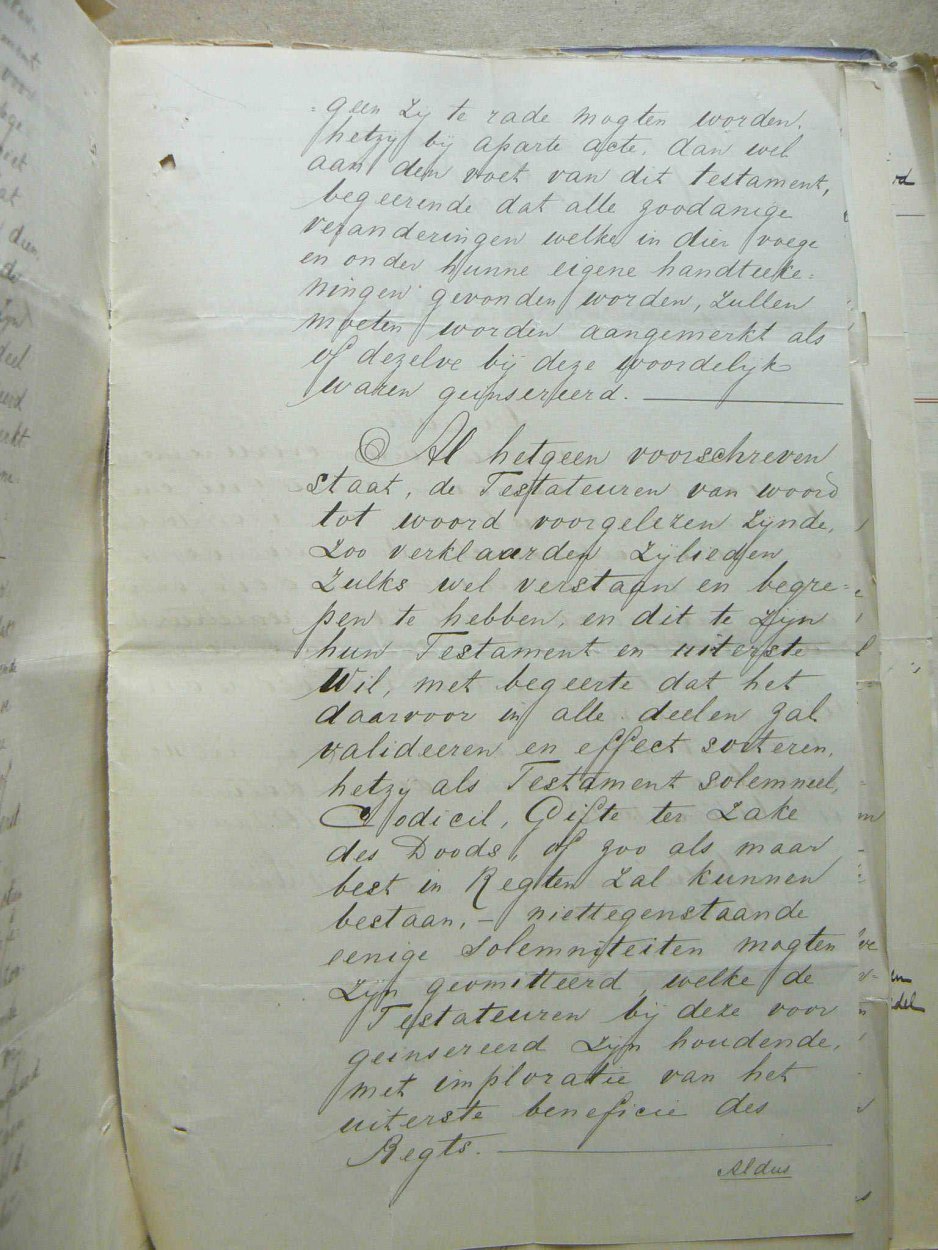 =geen zij te rade mogten worden,
hetzy bij aparte acte, dan wel
aan den voet van dit testament,
begeerende dat alle zoodanige
veranderingen welke in dier voege
en onder hunne eigene handteeke=
ningen gevonden worden, zullen
moeten worden aangemerkt als
of dezelve bij deze woordelijk
waren geïnsereerd.
Al hetgeen voorschreven
staat, de Testateuren van woord
tot woord voorgelezen zynde,
zoo verklaarden zylieden
zulks wel verstaan en begre=
pen te hebben, en dit te zijn
hun Testament en uiterste
Wil, met begeerte dat het
daarvoor in alle deelen zal
valideeren en effect sorteren,
hetzy als Testament solemneel,
Codicil, Gifte ter zake
des Doods, of zoo als maar
best in Regten zal kunnen
bestaan,- niettegenstaande
eenige Solemniteiten mogten
zijn geomitteerd, welke de
Testateuren bij deze voor
geinsereerd zijn houdende,
met imploratie van het
uiterste beneficie des
Regts.
Aldus